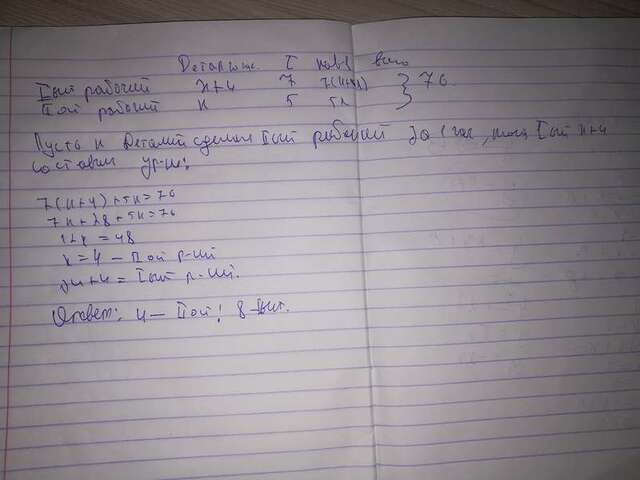 Детал/час t кол-в всего
I ый рабочий x+4 7 7(x+4) } 76
II ой рабочий x 5 5x
Пусть x деталей сделал II ый рабочий за 1 час, тогда I ый x+4
составим ур-ие:
7(x+4)+5x=76
7x+28+5x=76
12x=48
x=4 – II ой р-ий
x+4= I ый р-ий.
Ответ: 4 – II ой! 8 –